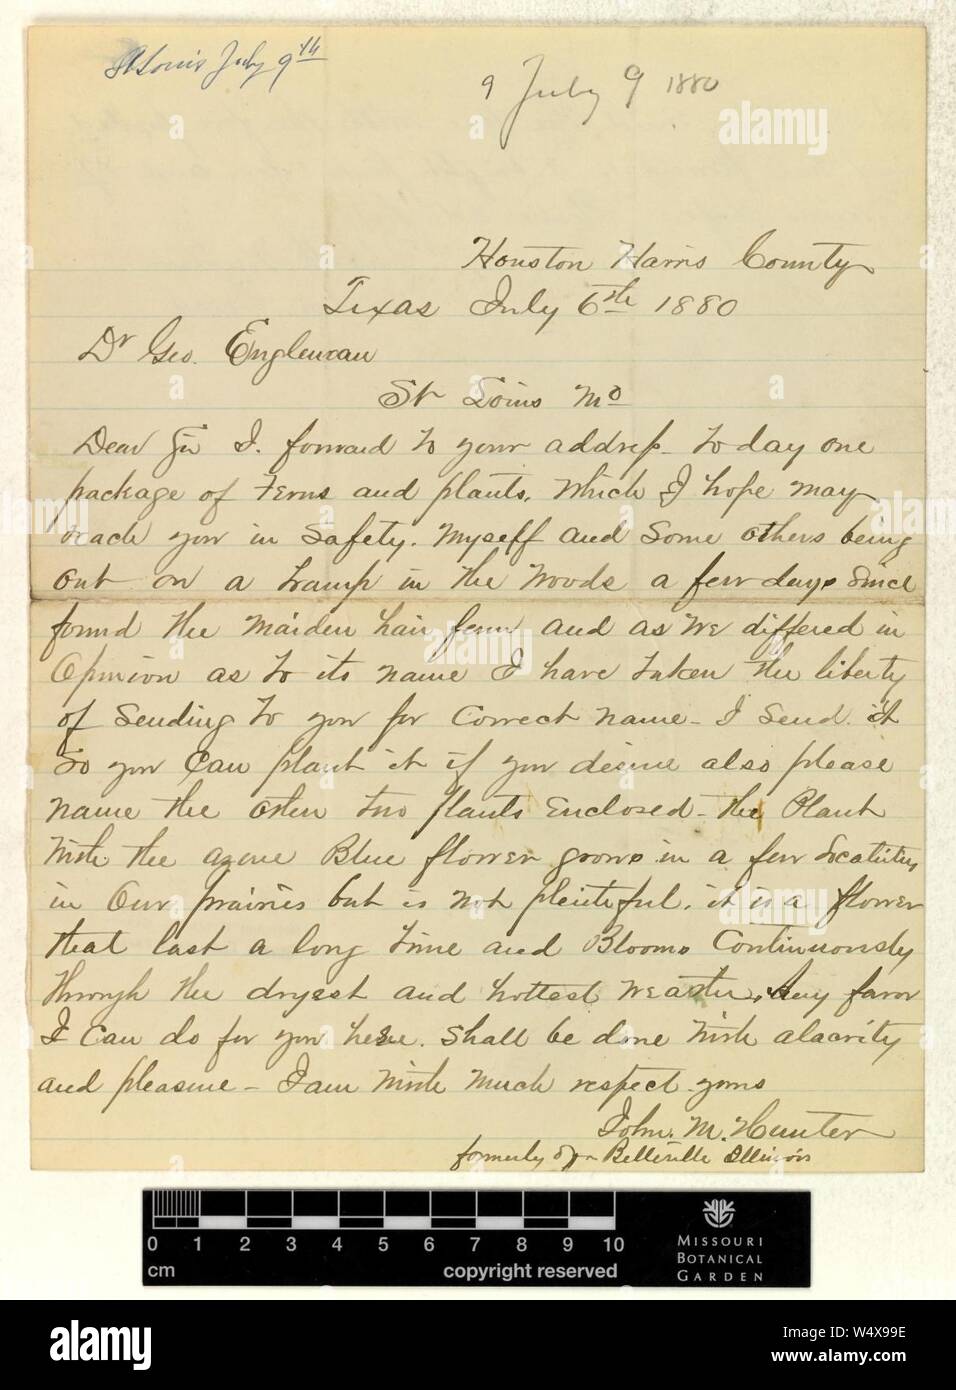 St Louis July 9th
9 July 9 1880
Houston Harris County
Texas July 6th 1880
Dr Geo. Englewau
St Louis Mo
Dear Sir I. forward to your address - to day one
package of Ferns and plants. Which I hope may
reach you in Safety. Myself and Some others being
out on a tramp in the Woods a few days Since
found the Maiden hair fern and as We differed in
Opinion as to its name I have taken the liberty
of Sending to you for Correct name - I Send it
So you Can plant it if you desire also please
name the other two plants Enclosed - the Plant
With the azure Blue flower grows in a few Localities
in Our prairies but is not plentiful. it is a flower
that last a long time and Blooms Continuously
through the dryest and hottest Weather. Any favor
I Can do for you here. Shall be done With alacrity
and pleasure - I am With Much respect yours
John. M. Hunter
formerly of Belleville Illinois
0 1 2 3 4 5 6 7 8 9 10
cm
copyright reserved
MISSOURI
BOTANICAL
GARDEN
alamy
a
alamy
Image ID: W4X99E
www.alamy.com